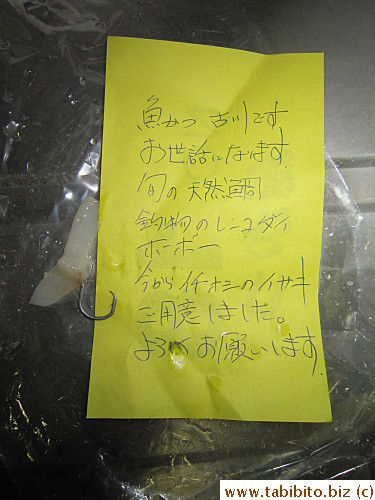 魚かつ 古川です
お世話になります
旬の天然鯛
釣物のレンコダイ
ホーボー
今からイチオシのイサキ
ご用意しました。
よろしくお願いします
www.tabibito.biz (c)